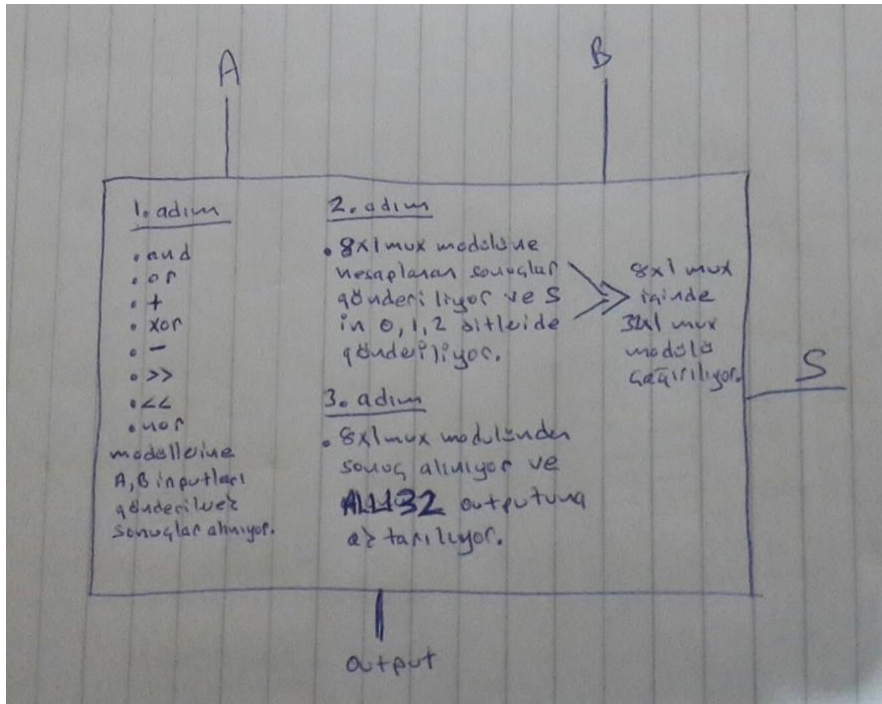 A
B
1. adım
• and
• or
• +
• xor
• -
• >>
• <<
• nor
modüllerine
A, B inputları
gönderilerek
sonuçlar alınıyor.
2. adım
• 8x1 mux modülüne
hesaplanan sonuçlar
gönderiliyor ve S
in 0, 1, 2 bitleride
gönderiliyor.
8x1 mux
içinde
32x1 mux
modülü
çağırılıyor.
3. adım
• 8x1 mux modülünden
sonuç alınıyor ve
ALU32 outputuna
aktarılıyor.
S
output